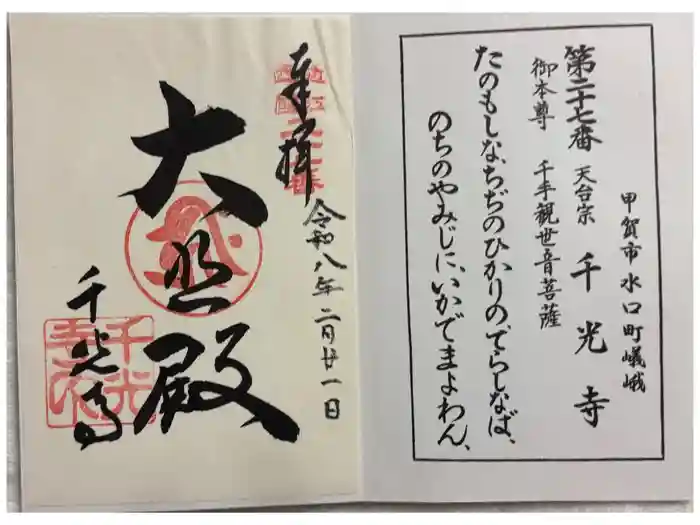 甲賀市水口町嶬峨
第二十七番 天台宗 千光寺
御本尊 千手観世音菩薩
たのもしな、ちぢのひかりのてらしなば、
のちのやみじに、いかでまよわん、
奉拝
令和八年二月廿一日
大悲殿
千光寺